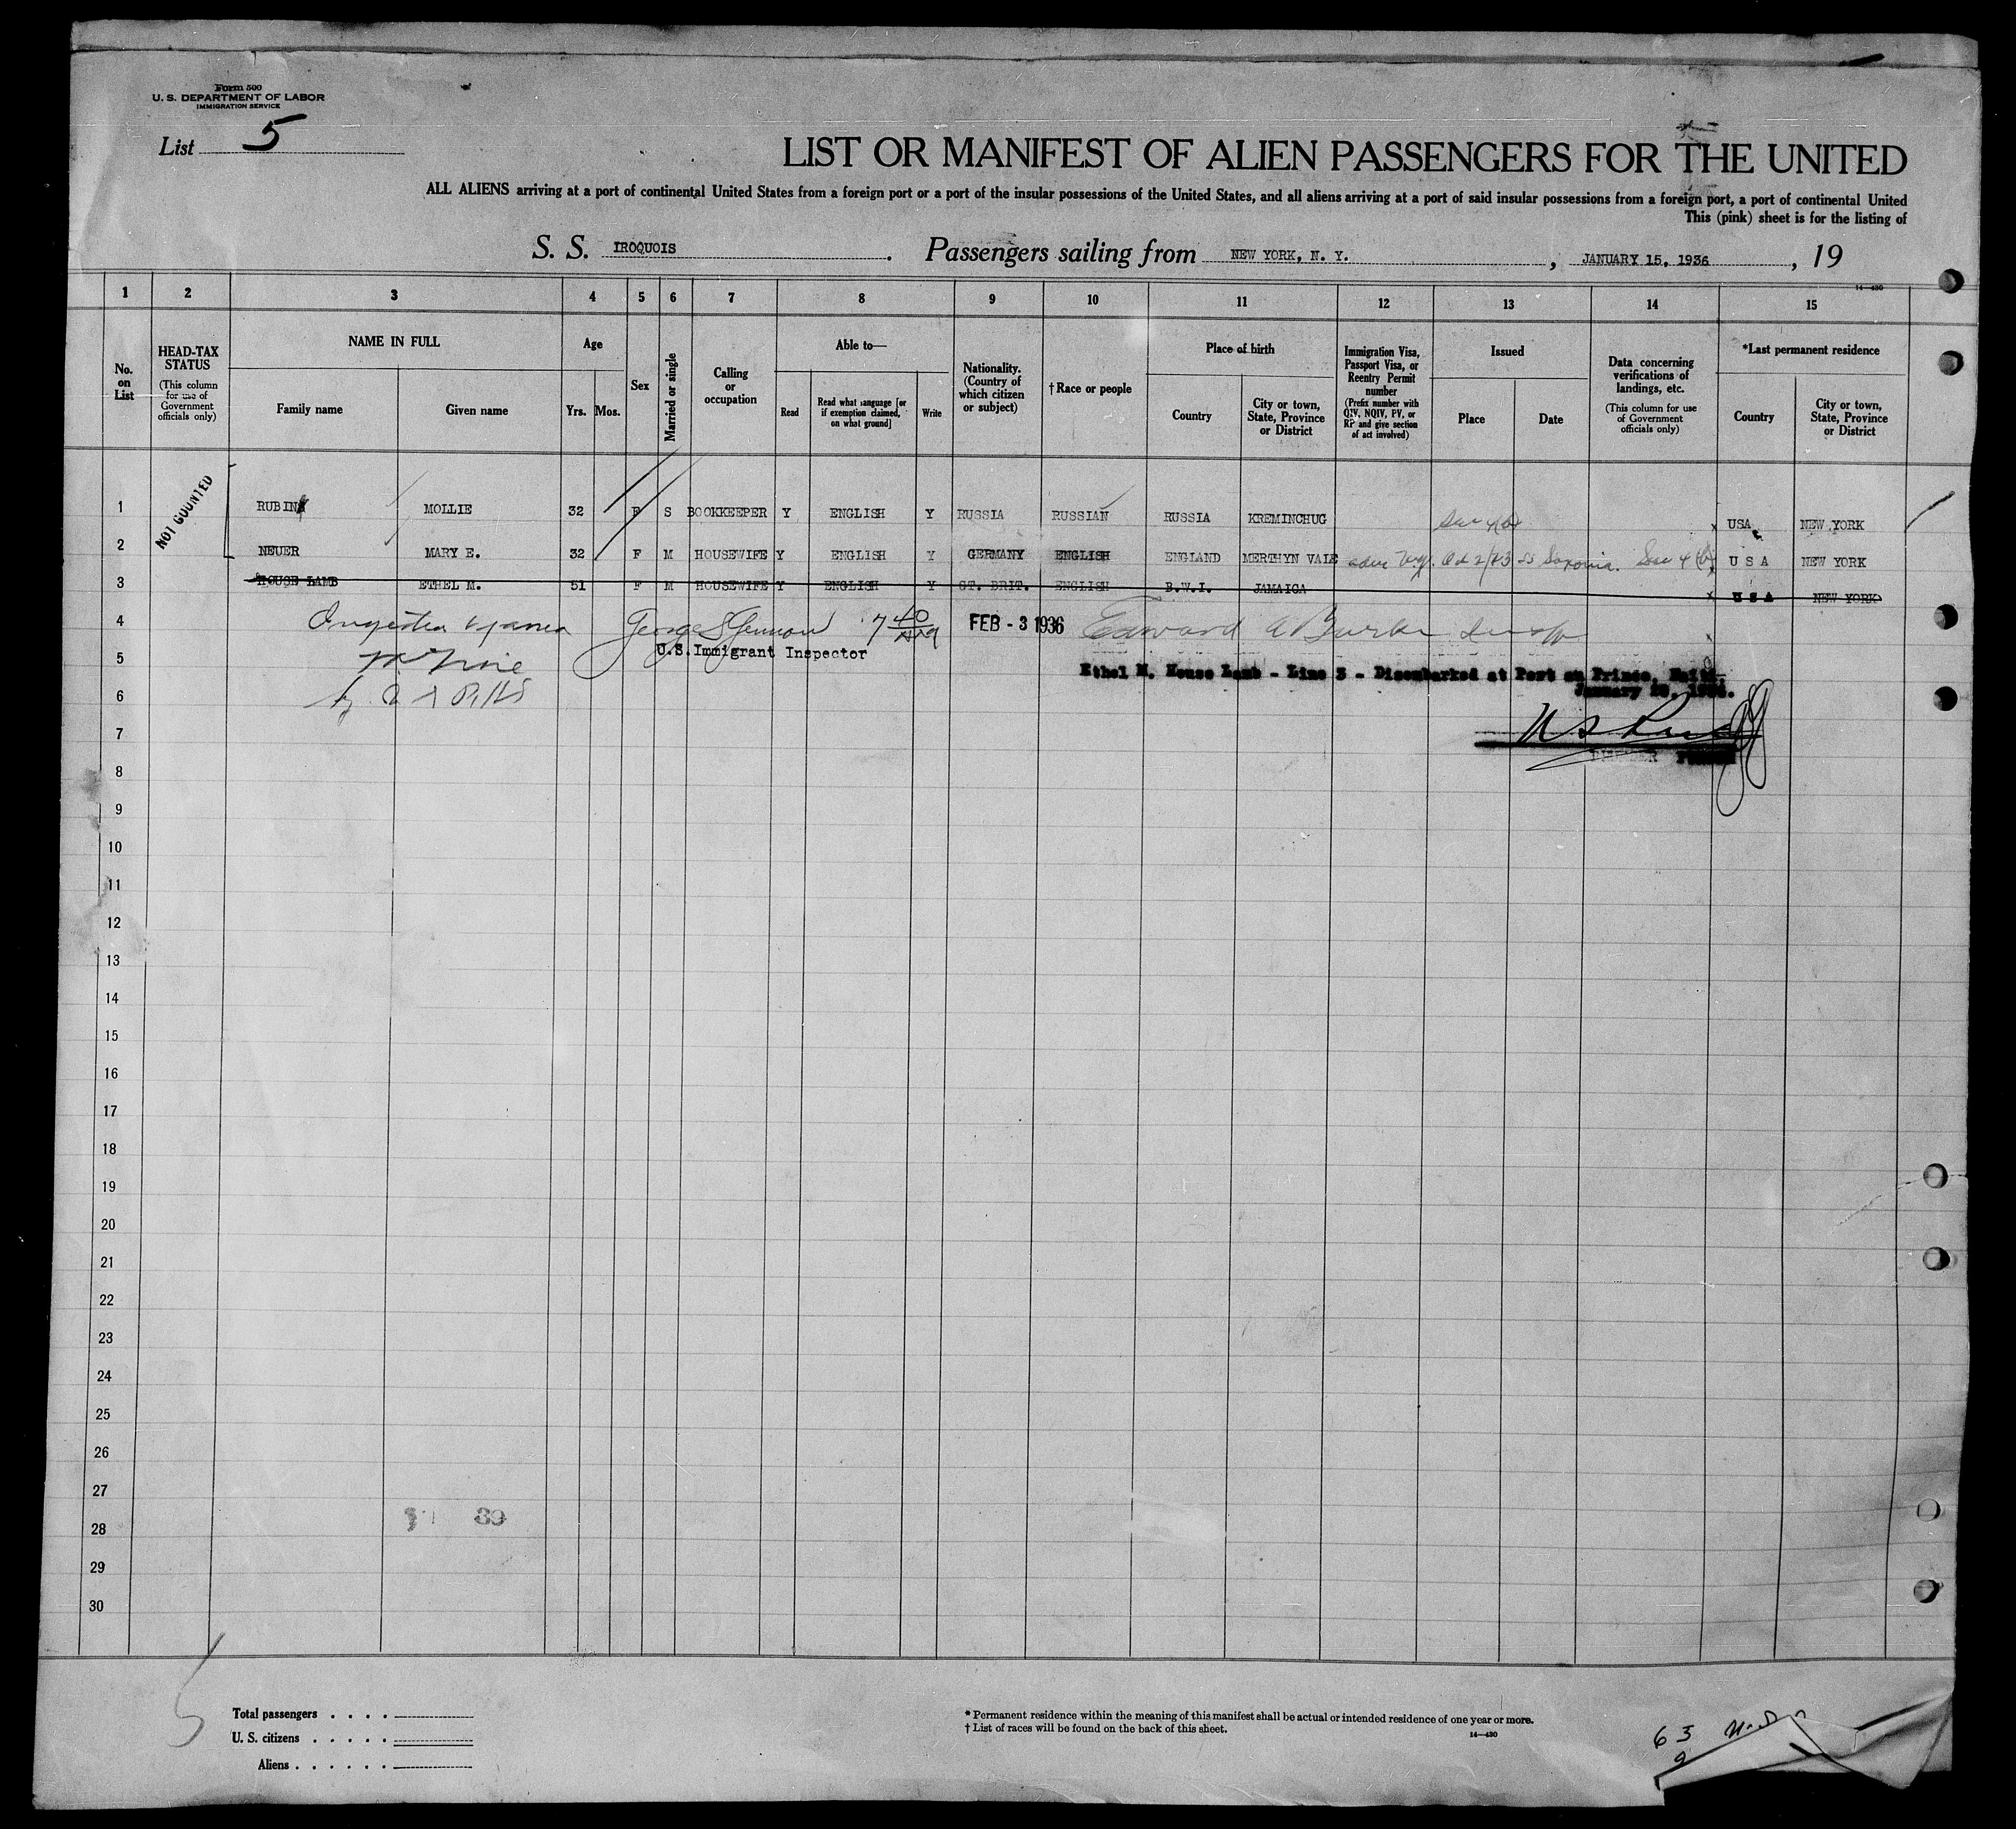 Form 500
U. S. DEPARTMENT OF LABOR
IMMIGRATION SERVICE
List 5
LIST OR MANIFEST OF ALIEN PASSENGERS FOR THE UNITED
ALL ALIENS arriving at a port of continental United States from a foreign port or a port of the insular possessions of the United States, and all aliens arriving at a port of said insular possessions from a foreign port, a port of continental United
This (pink) sheet is for the listing of
S. S. IROQUOIS . Passengers sailing from NEW YORK, N. Y. , JANUARY 15, 1936 , 19
14—430
1 2 3 4 5 6 7 8 9 10 11 12 13 14 15
No. on List
HEAD-TAX STATUS
(This column for use of Government officials only)
NAME IN FULL
Family name
Given name
Age
Yrs. Mos.
Sex
Married or single
Calling or occupation
Able to—
Read
Read what language [or if exemption claimed, on what ground]
Write
Nationality. (Country of which citizen or subject)
† Race or people
Place of birth
Country
City or town, State, Province or District
Immigration Visa, Passport Visa, or Reentry Permit number
(Prefix number with QIV, NQIV, PV, or RP and give section of act involved)
Issued
Place
Date
Data concerning verifications of landings, etc.
(This column for use of Government officials only)
*Last permanent residence
Country
City or town, State, Province or District
NOT COUNTED
1 RUBIN MOLLIE 32 F S BOOKKEEPER Y ENGLISH Y RUSSIA RUSSIAN RUSSIA KREMINCHUG USA NEW YORK
2 NEUER MARY E. 32 F M HOUSEWIFE Y ENGLISH Y GERMANY ENGLISH ENGLAND MERTHYN VALE Oct 2/23 SS Saxonia. Sec 4 (b) U S A NEW YORK
3 HOUSE LAMB ETHEL M. 51 F M HOUSEWIFE Y ENGLISH Y GT. BRIT. ENGLISH B.W.I. JAMAICA U S A NEW YORK
4 FEB - 3 1936 Edward A Burke
U.S. Immigrant Inspector
5 Ethel M. House Lamb - Line 3 - Disembarked at Port au Prince, Haiti
6
7
8
9
10
11
12
13
14
15
16
17
18
19
20
21
22
23
24
25
26
27
39
28
29
30
Total passengers . . . .
U. S. citizens . . . . .
Aliens . . . . . .
* Permanent residence within the meaning of this manifest shall be actual or intended residence of one year or more.
† List of races will be found on the back of this sheet.
14—430
63
9